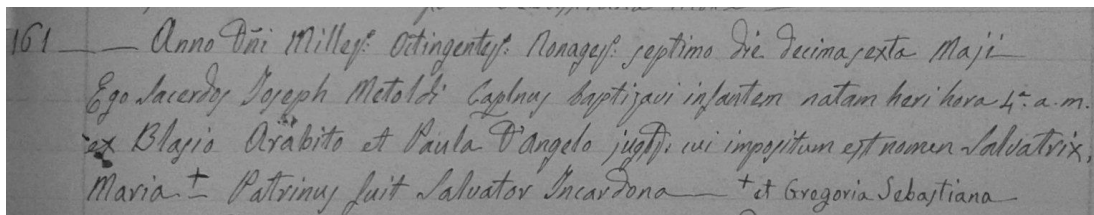 161 — Anno Dñi Milles: Octingentes: Nonages: septimo die decimasexta Maji
Ego Sacerdos Joseph Metoldi Caplnus baptizavi infantem natam heri hora 4ª a.m.
ex Blasio Arabito et Paula D'Angelo jugb: cui impositum est nomen Salvatrix,
Maria + — Patrinus fuit Salvator Incardona — + et Gregoria Sebastiana